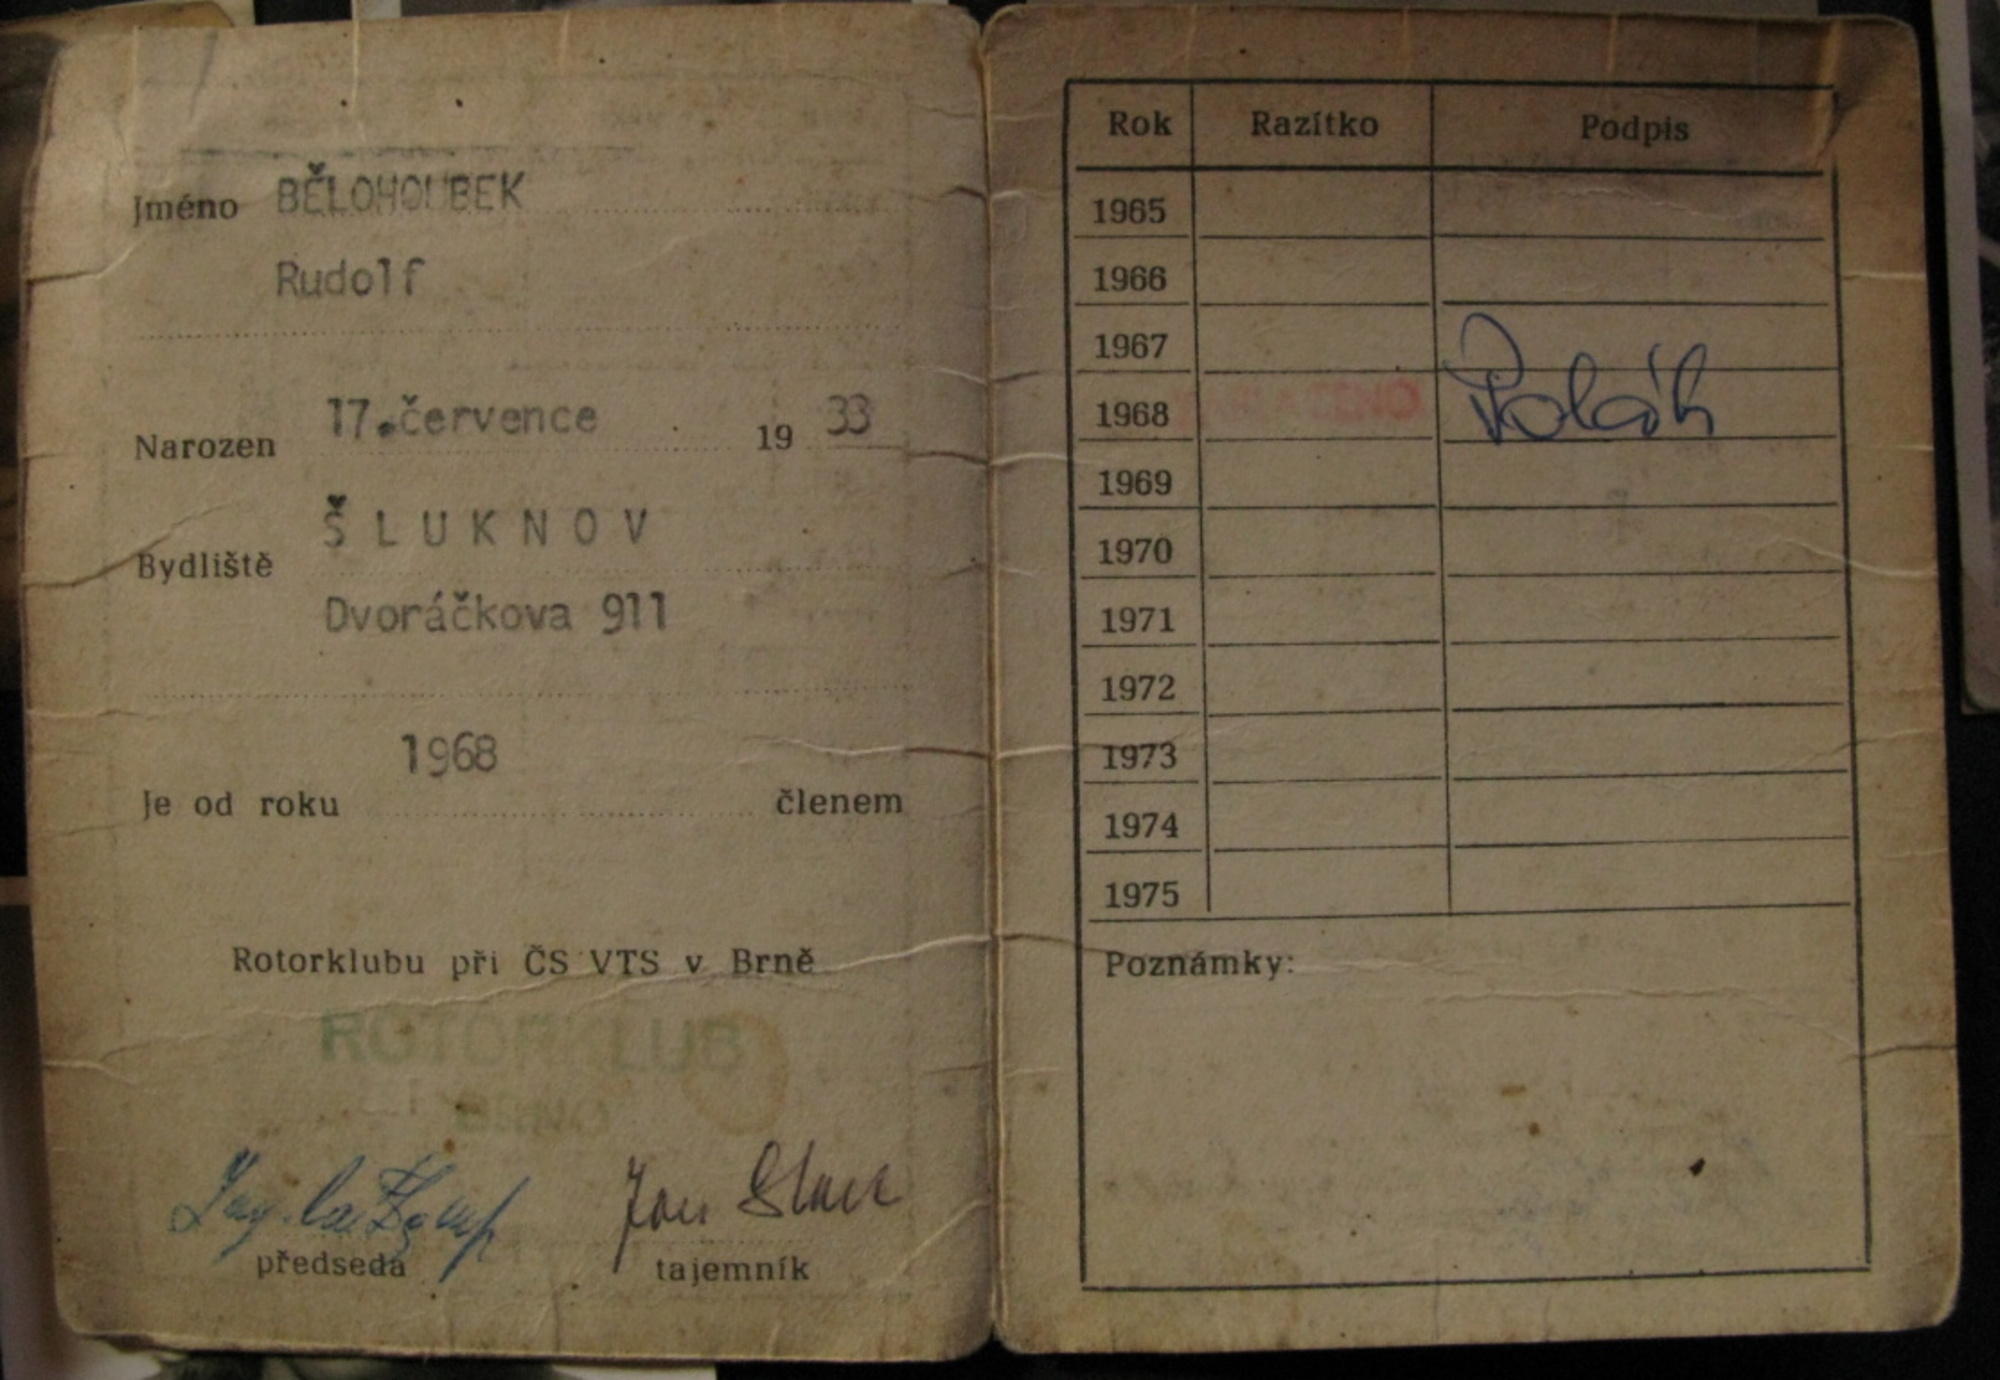 Jméno BĚLOHOUBEK
Rudolf
Narozen 17.července 19 33
Bydliště ŠLUKNOV
Dvoráčkova 911
Je od roku 1968 členem
Rotorklubu při ČS VTS v Brně
ROTORKLUB
BRNO
Jan
předseda tajemník
Rok Razítko Podpis
1965
1966
1967
1968 ZAPLACENO Polák
1969
1970
1971
1972
1973
1974
1975
Poznámky: